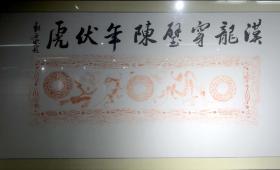 漢龍穿璧陳年伏虎